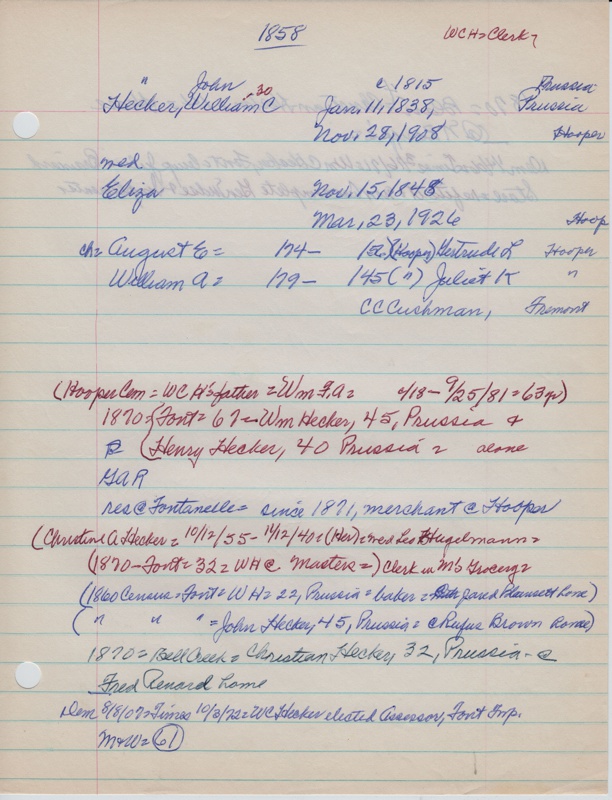 1858 WCH=Clerk?
" John c 1815 Prussia
Hecker, William C 30 Jan. 11, 1838, Prussia
Nov. 28, 1908 Hooper
med
Eliza Nov. 15, 1848
Mar, 23, 1926 Hoop
ch= August E= 174- (Hooper) Gertrude L Hooper
William A= 179- 145 (") Juliet K "
CC Cushman, Fremont
(Hooper Cem = WC H's father = Wm F.A= 4/18 - 9/25/81 = 63 yr)
1870 = (Font= 67 = Wm Hecker, 45, Prussia &
(Henry Hecker, 40 Prussia = alone
GAR
res @ Fontanelle = since 1871, merchant @ Hooper
(Christine A Hecker = 10/12/55 - 14/12/40 = (Her) = Hugelmann =
(1870 - Font = 32 = WH @ Masters =) Clerk in M's Grocery =
(1860 Census = Font = WH = 22, Prussia = baker = Jared home)
(" " " = John Hecker, 45, Prussia = @ Rufus Brown home)
1870 = Bell Creek = Christian Hecker, 32, Prussia - @
Fred Renard home
Dem 8/8/07 = Times 10/3/72 = WC Hecker elected Assessor, Font Twp.
M&W = 61